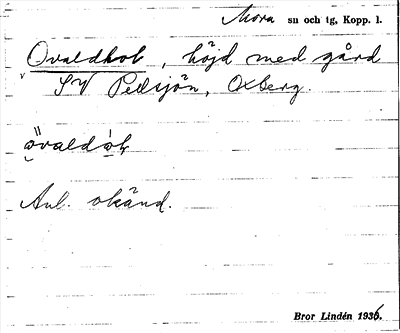 Mora sn och tg, Kopp. l.
Ovaldkob, höjd med gård
SV Pellsjön, Oxberg.
Anl. okänd.
Bror Lindén 1936.